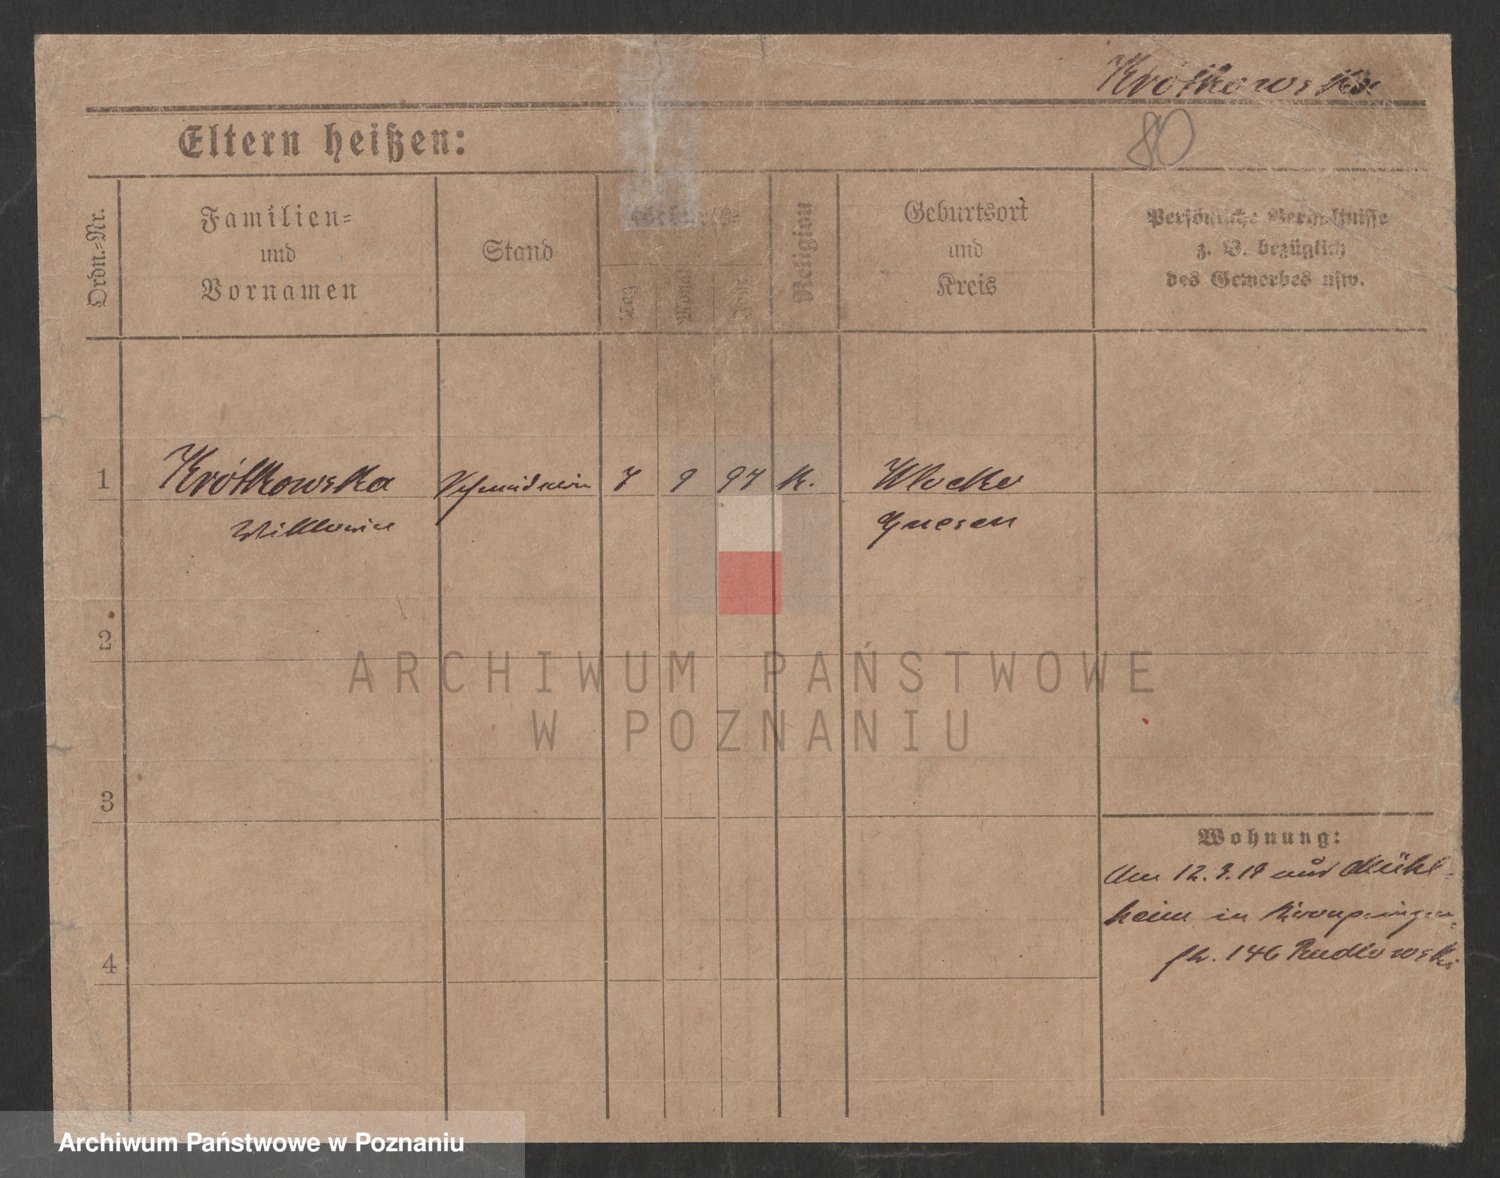 Krótkowska
80
Eltern heißen:
Ordn.=Nr.
Familien=
und
Vornamen
Stand
Geburts
Tag
Monat
Jahr
Religion
Geburtsort
und
Kreis
Persönliche Verhältnisse
z. B. bezüglich
des Gewerbes usw.
1 Krótkowska 7 9 97 K.
Gnesen
2
3
4
Wohnung:
Am 12.3.19 aus Mühl-
heim in Kronprinzen-
146 Rudlowski
ARCHIWUM PAŃSTWOWE
W POZNANIU
Archiwum Państwowe w Poznaniu